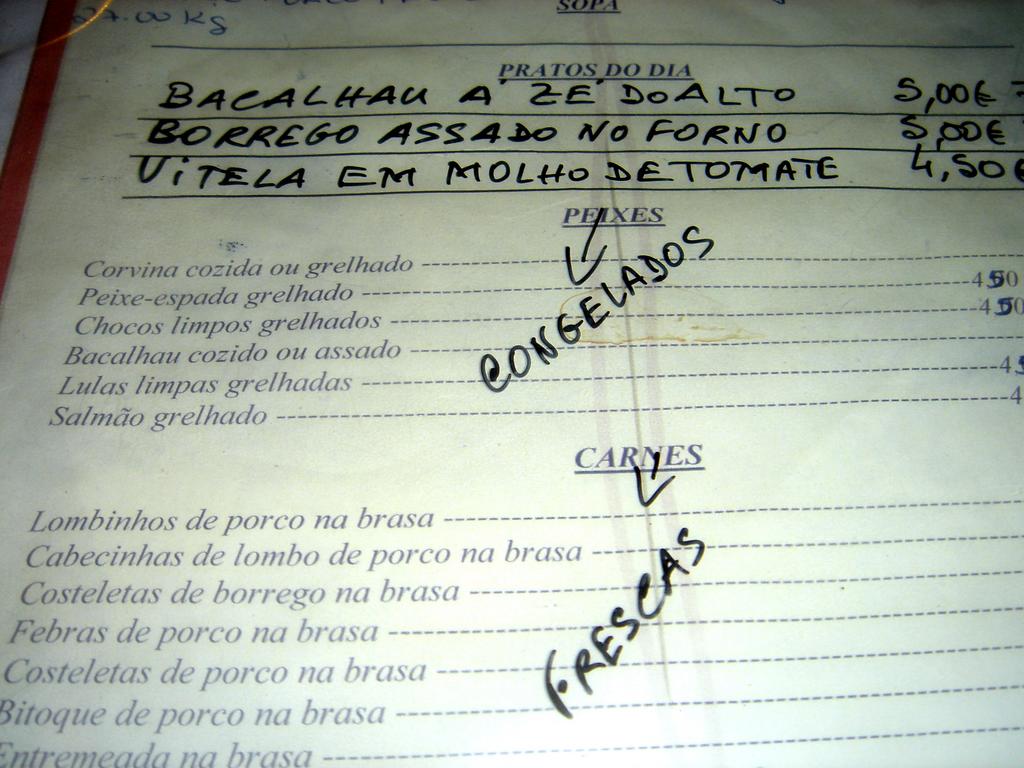 27.00 Kg
SOPA
PRATOS DO DIA
BACALHAU A' ZE' DO ALTO 5,00€
BORREGO ASSADO NO FORNO 5,00€
ViTELA EM MOLHO DE TOMATE 4,50€
PEIXES
Corvina cozida ou grelhado
Peixe-espada grelhado 4 50
Chocos limpos grelhados 4 50
Bacalhau cozido ou assado
Lulas limpas grelhadas 4
Salmão grelhado 4
CONGELADOS
CARNES
Lombinhos de porco na brasa
Cabecinhas de lombo de porco na brasa
Costeletas de borrego na brasa
Febras de porco na brasa
Costeletas de porco na brasa
Bitoque de porco na brasa
Entremeada na brasa
FRESCAS